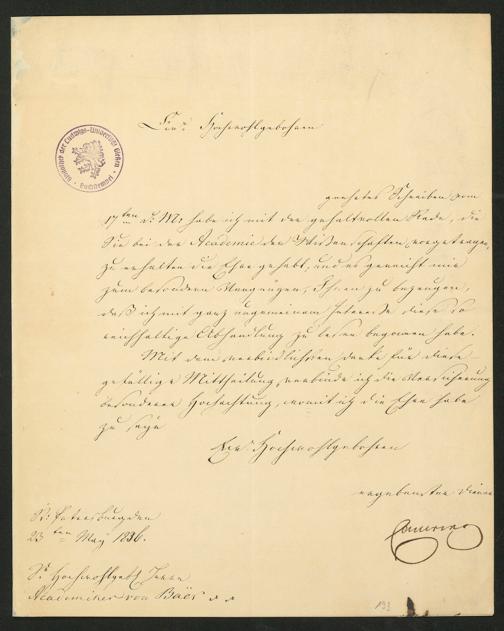 Bibliothek der Ludwigs-Universität Gießen
Buchstempel
Euer Hochwohlgebohren
geehrtes Schreiben vom
17ten d. M. habe ich mit der gehaltvollen Rede, die
Sie bei der Academie der Wissenschaften vorgetragen,
zu erhalten die Ehre gehabt, und es gereicht mir
zum besondern Vergnügen, Ihnen zu bezeugen,
daß ich mit ganz ungemeinem Interesse diese so
reichhaltige Abhandlung zu lesen begonnen habe.
Mit dem verbindlichsten Danke für diese
gefällige Mittheilung, verbinde ich die Versicherung
besonderer Hochachtung, womit ich die Ehre habe
zu seyn
Euer Hochwohlgebohren
ergebenster Diener
Cancrin
St. Petersburg den
23ten May 1836.
Sr Hochwohlgeb. Herrn
Academiker von Baër